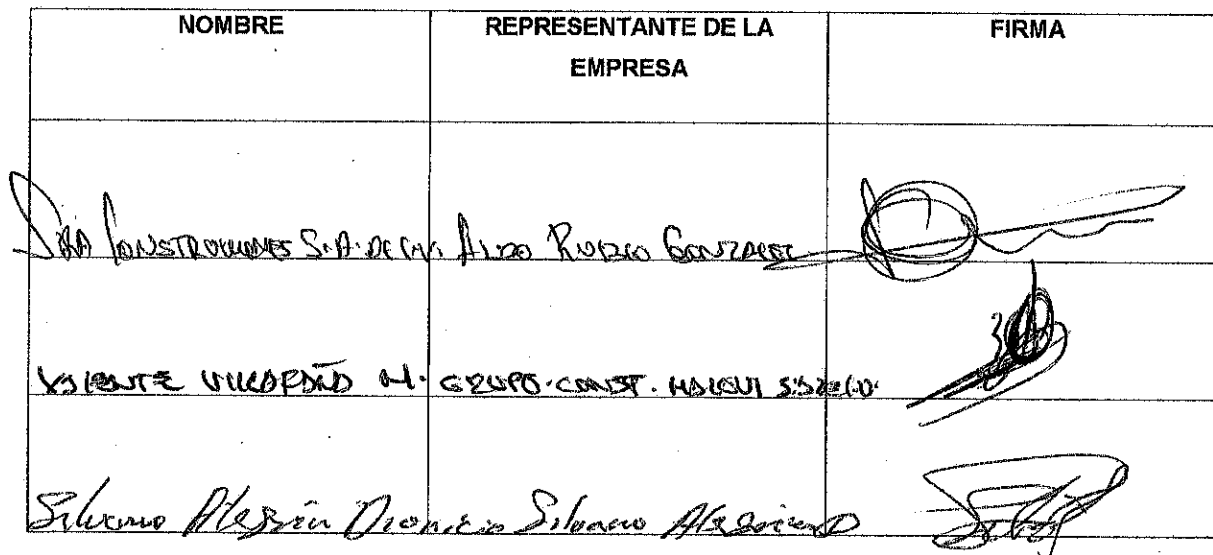 NOMBRE REPRESENTANTE DE LA EMPRESA FIRMA
CONSTRUCCIONES S.A. DE C.V. ALDO RUBIO GONZALEZ
VICENTE M. GRUPO. CONST.
Silvano Alegria Dionicio Silvano Alegria D